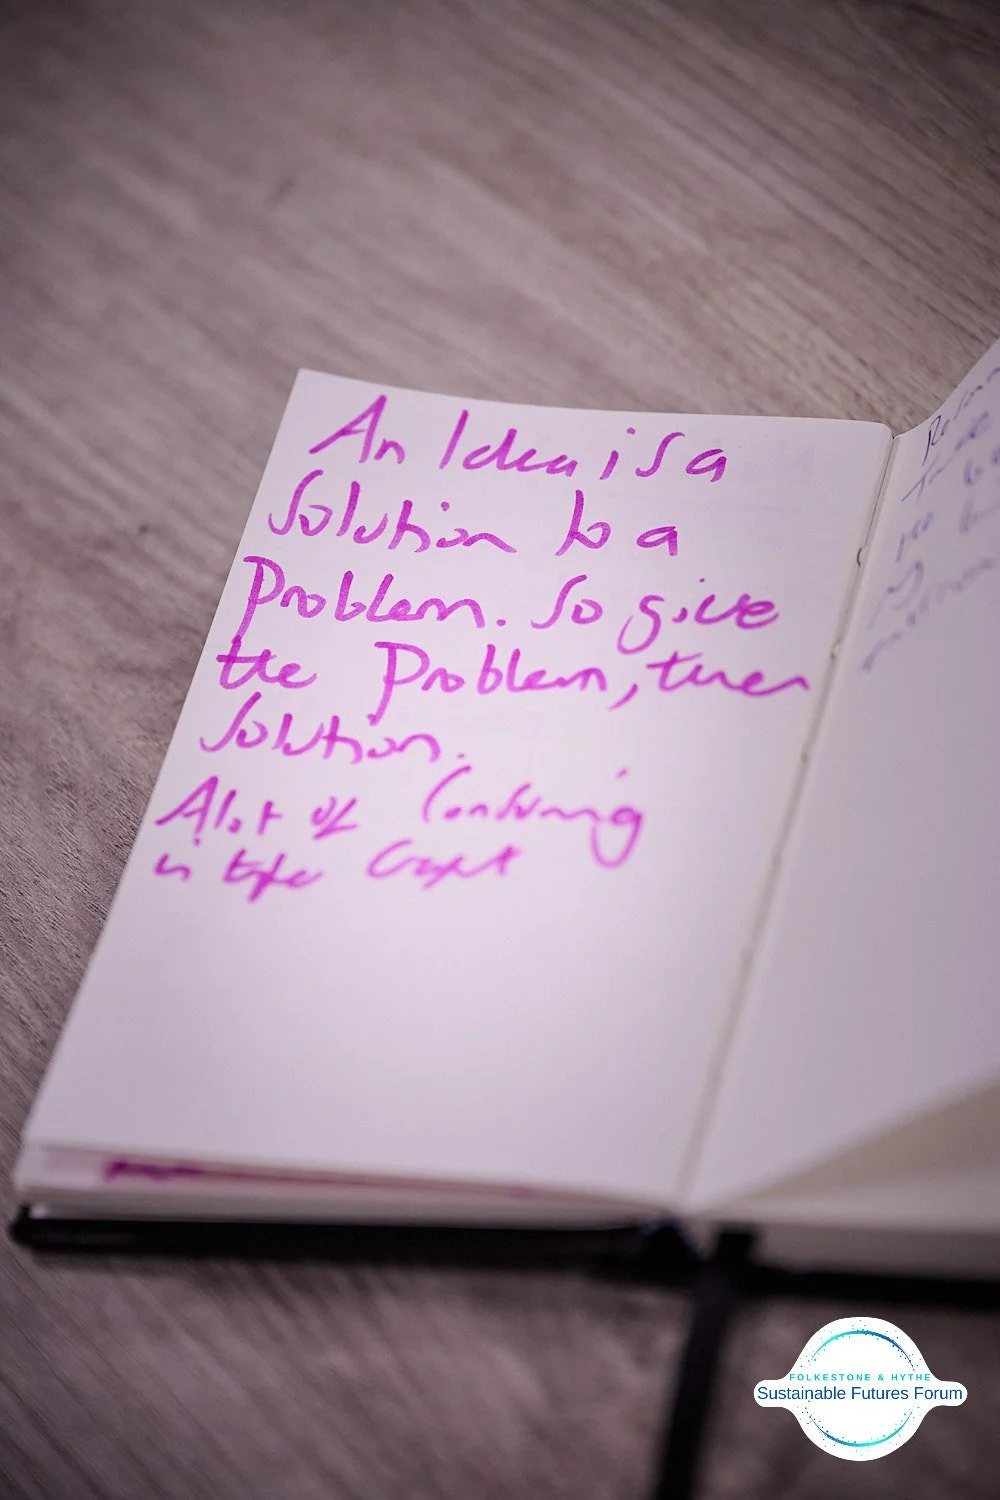 An Idea is a
Solution to a
Problem. So give
the Problem, then
Solution.
Alot of Confusing
in
FOLKESTONE & HYTHE
Sustainable Futures Forum